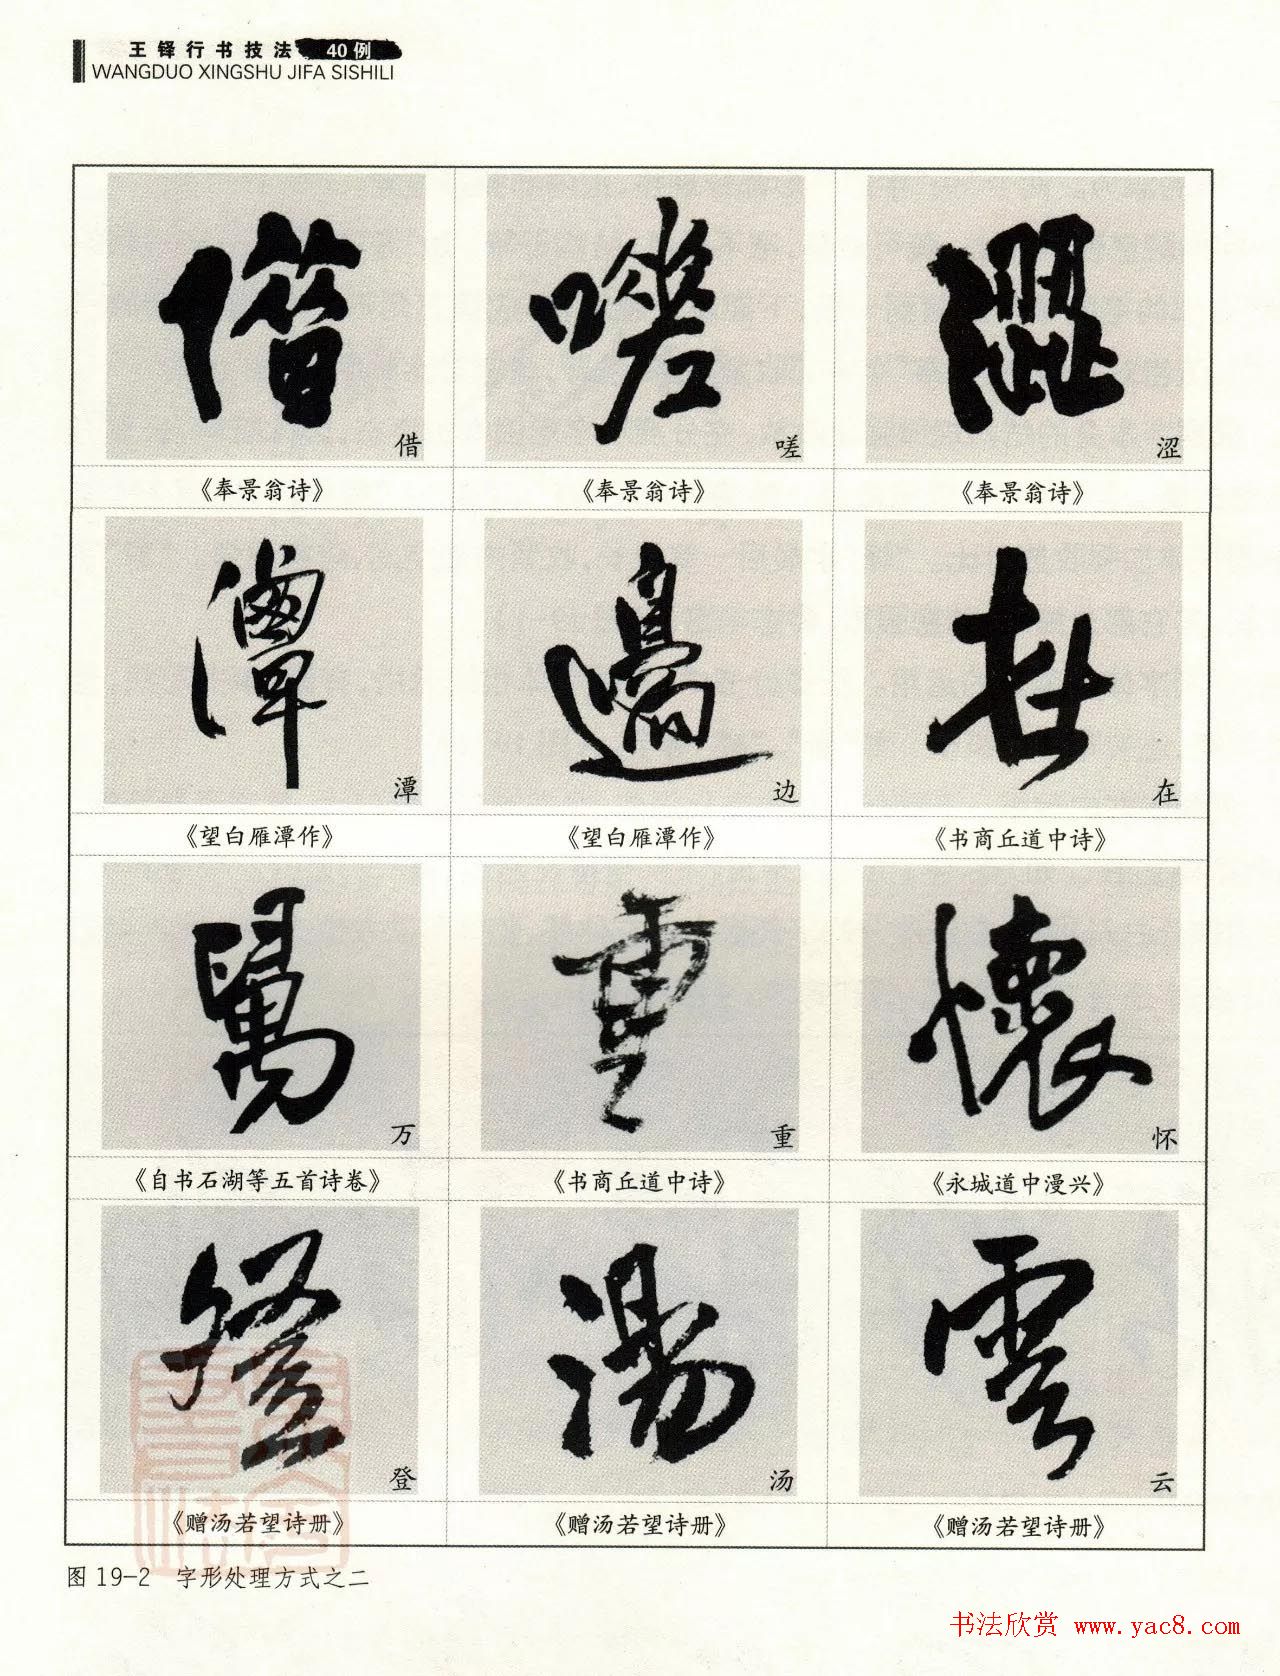 王铎行书技法 40例
WANGDUO XINGSHU JIFA SISHILI
借 嗟 涩
《奉景翁诗》 《奉景翁诗》 《奉景翁诗》
潭 边 在
《望白雁潭作》 《望白雁潭作》 《书商丘道中诗》
万 重 怀
《自书石湖等五首诗卷》 《书商丘道中诗》 《永城道中漫兴》
登 汤 云
《赠汤若望诗册》 《赠汤若望诗册》 《赠汤若望诗册》
图 19-2 字形处理方式之二
书法欣赏 www.yac8.com